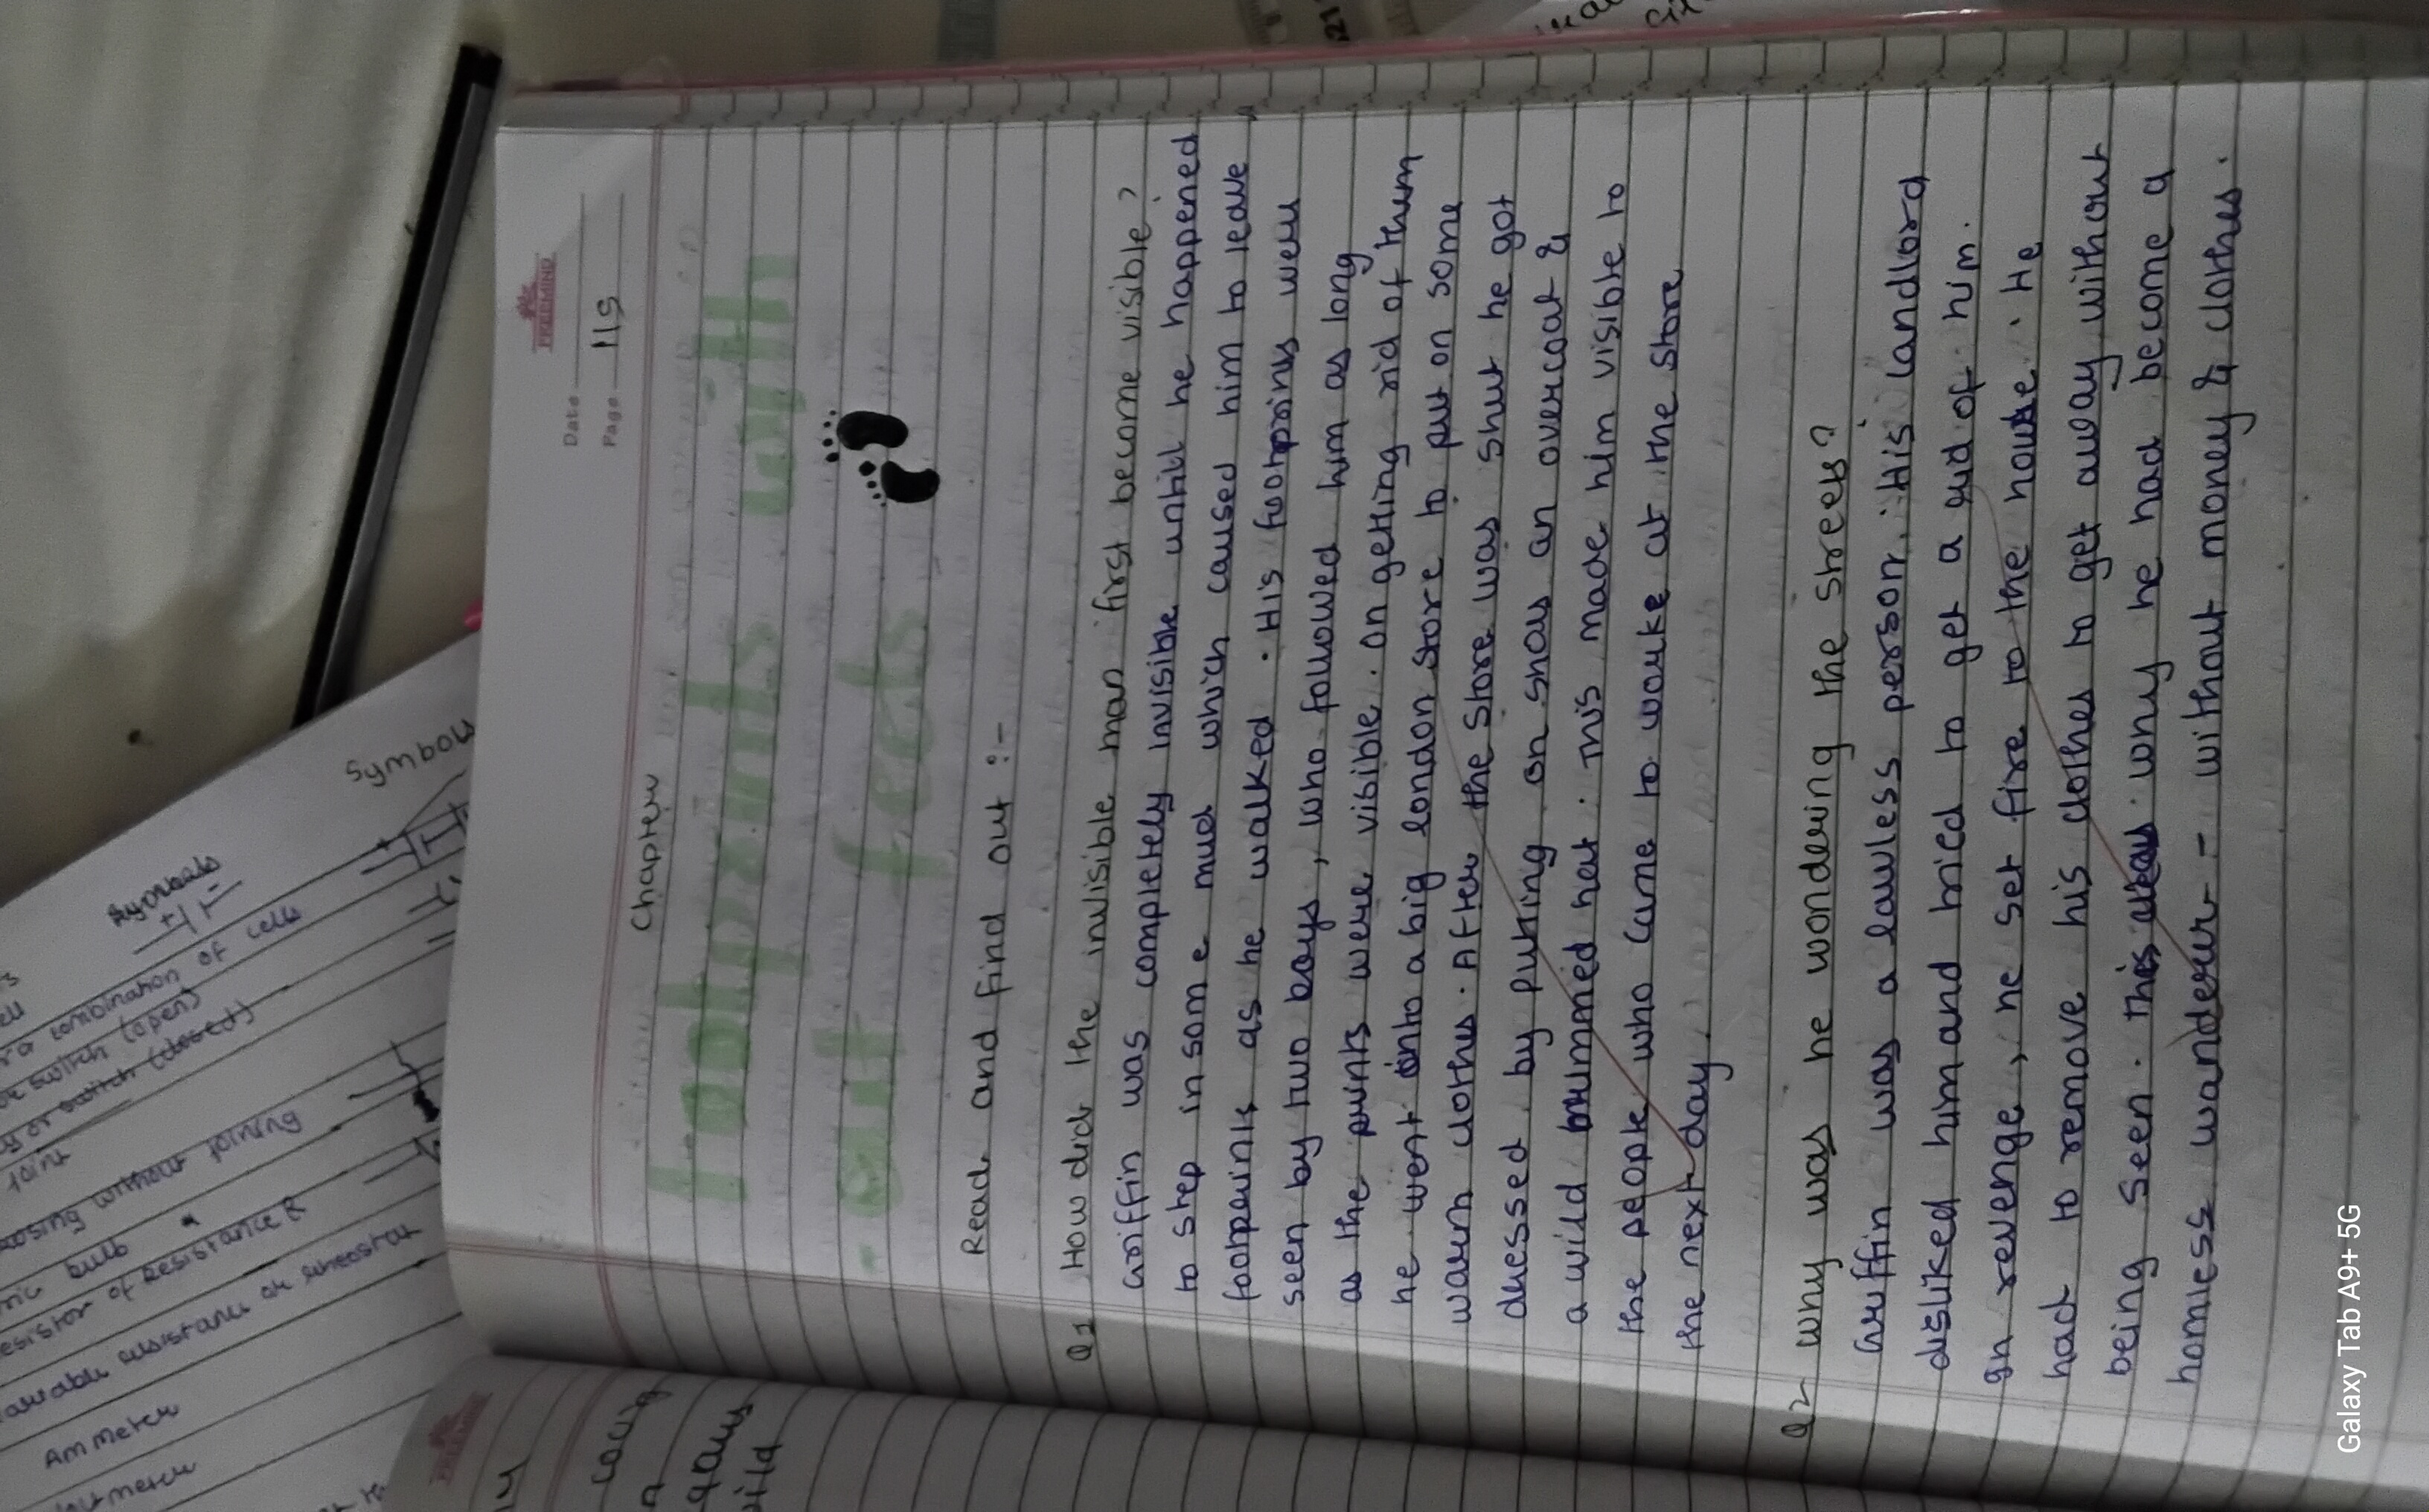 PREMIND
Date
Page 115
Chapter
Footprints with
-out feets
Read and find out :-
Q1 How did the invisible man first become visible?
Griffin was completely invisible until he happened
to step in some mud which caused him to leave
footprints as he walked. His footprints were
seen by two boys, who followed him as long
as the prints were visible. on getting rid of them
he went into a big london store to put on some
warm clothes. After the store was shut he got
dressed by putting on shoes an overcoat &
a wild brimmed hat. This made him visible to
the people who came to wouke at the store
the next day.
Q2 why was he wondering the streets?
Griffin was a lawless person. His landlord
disliked him and tried to get a rid of him.
In revenge, he set fire to the house. He
had to remove his clothes to get away without
being seen. This why he had become a
homless wanderer - without money & clothes.
Symbols
Symbols
+
combination of cells
switch (open)
switch (closed)
joint
crossing without joining
bulb
resistor of resistance R
variable resistance or rheostat
Ammeter
Galaxy Tab A9+ 5G